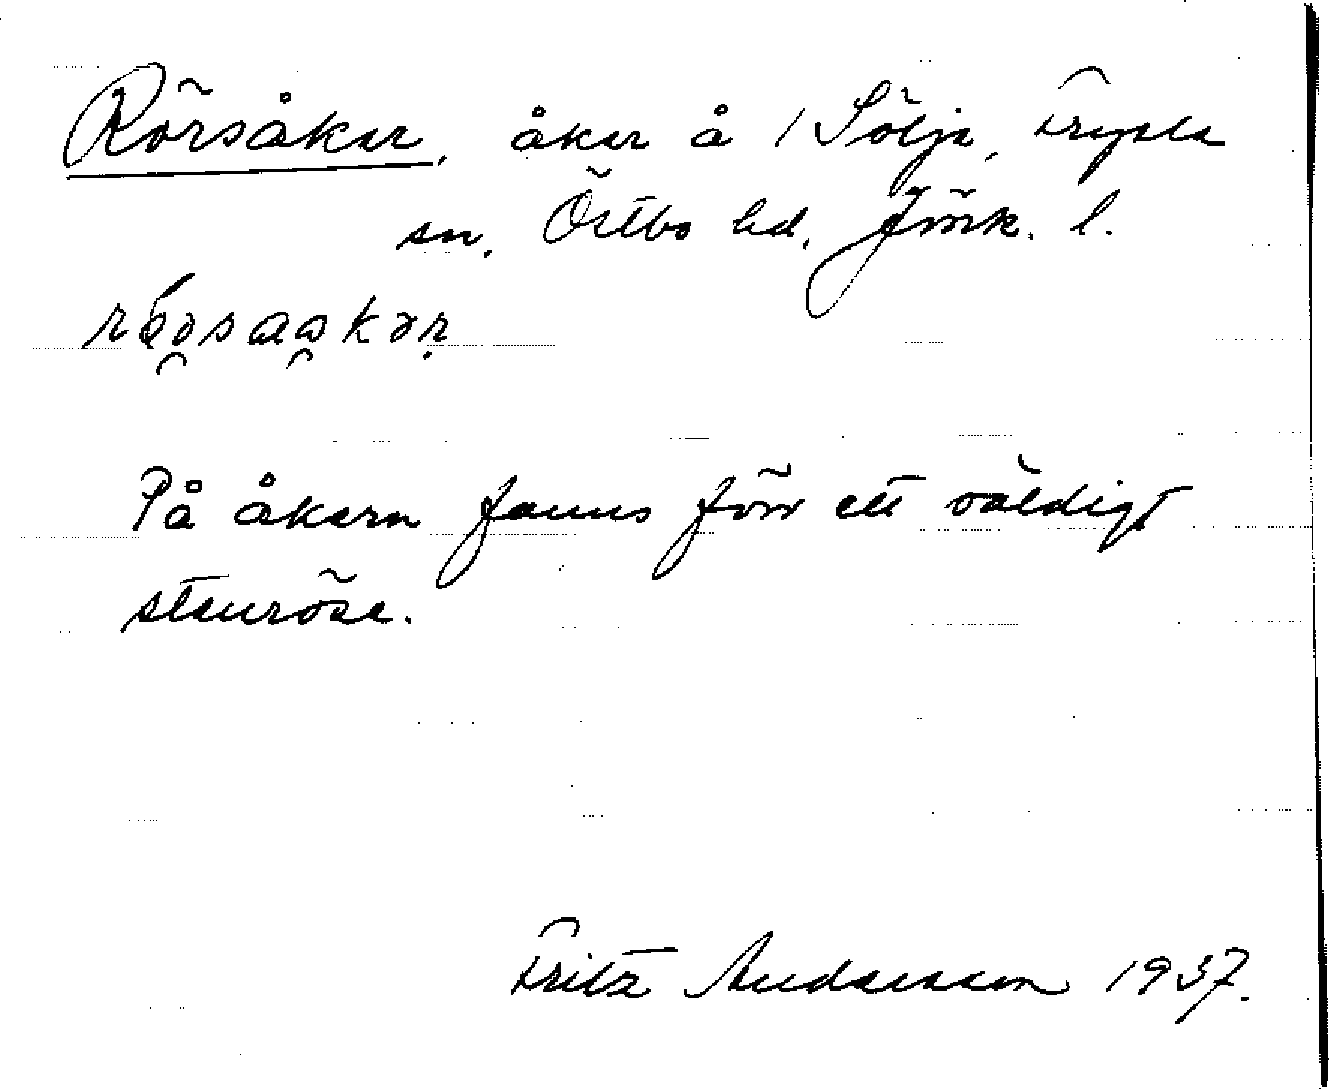 Rörsåker, åker å 1 Sölja, Fryele
sn, Östbo hd, Jönk. l.
På åkern fanns förr ett väldigt
stenröse.
Fritz Andersson 1937.